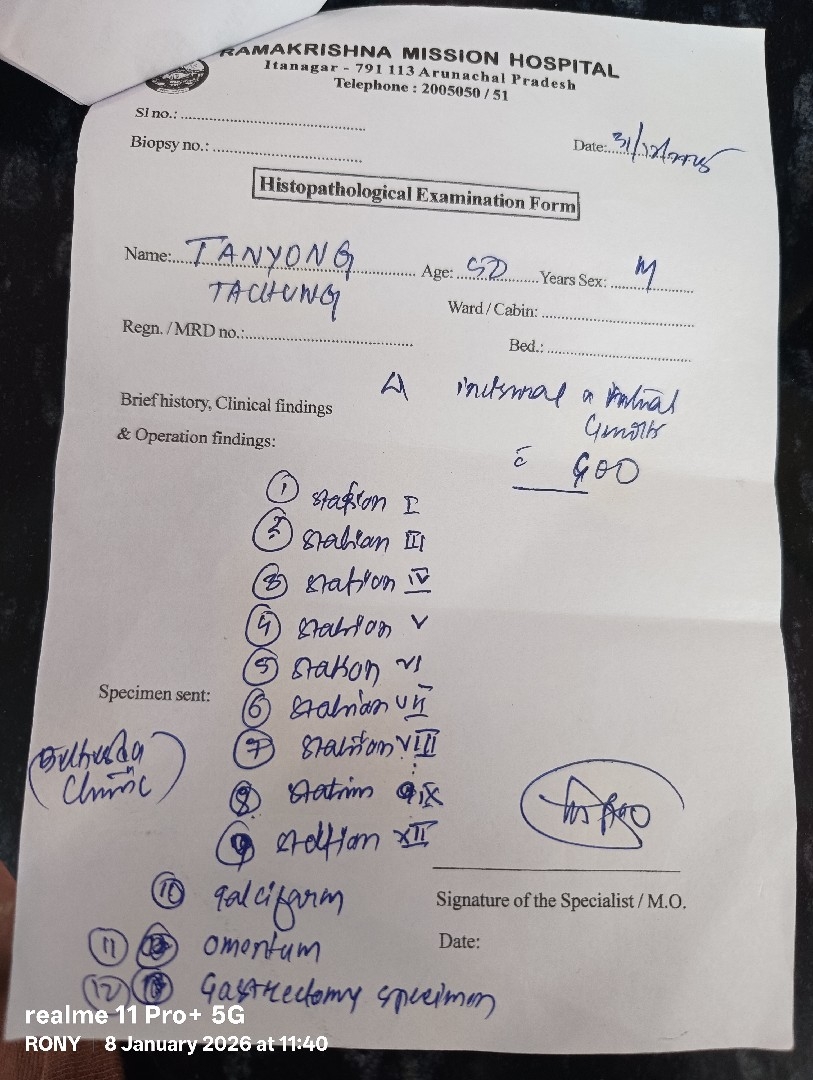 RAMAKRISHNA MISSION HOSPITAL
Itanagar - 791 113 Arunachal Pradesh
Telephone : 2005050 / 51
Sl no.:
Biopsy no.:
Date: 31/12/2025
Histopathological Examination Form
Name: TANYONG
TACHUNG
Age: 50 Years Sex: M
Ward / Cabin:
Regn. / MRD no.:
Bed.:
Brief history, Clinical findings
& Operation findings:
c̄ GOO
① station I
② station III
③ station IV
④ station V
⑤ station VI
⑥ station VII
⑦ station VIII
⑧ station IX
⑨ station XII
Specimen sent:
Clinic
⑩ falciform
⑪ omentum
⑫ Gastrectomy specimen
Signature of the Specialist / M.O.
Date:
realme 11 Pro+ 5G
RONY 8 January 2026 at 11:40